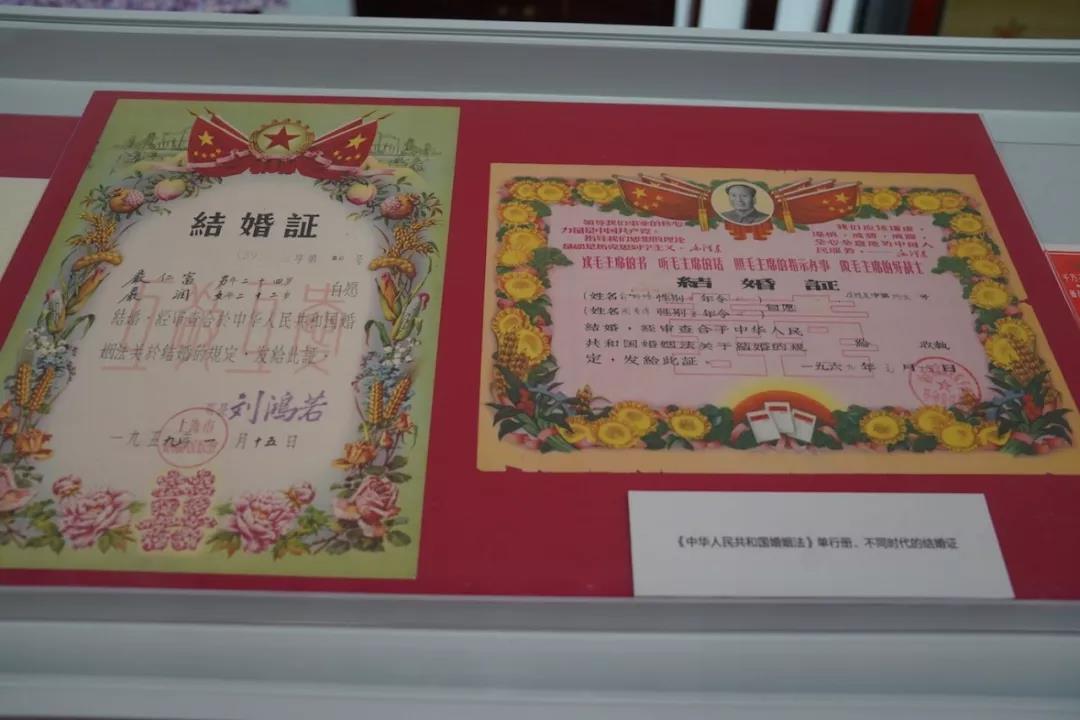 結婚証
字第
号
嚴仁富 男年二十四岁
嚴润 女年二十二岁 自愿
結婚，经審查合於中华人民共和国婚
姻法关於結婚的规定，发給此証。
刘鴻若
上海市
一九五九年一月十五日
領导我们事业的核心
力量是中国共产党。
指导我们思想的理论
基础是馬克思列宁主义。
我们应该谦虚，
謹慎，戒驕，戒躁，
全心全意地为中国人
民服务。
读毛主席的书 听毛主席的话 照毛主席的指示办事 做毛主席的好战士
結婚証
字第 号
(姓名 性别 年令 )
自愿
(姓名 性别 年令 )
結婚，经审查合于中华人民
共和国婚姻法关于結婚的规
定，发給此証。
給 收执
一九六九年 月 日
《中华人民共和国婚姻法》单行册、不同时代的结婚证
千万